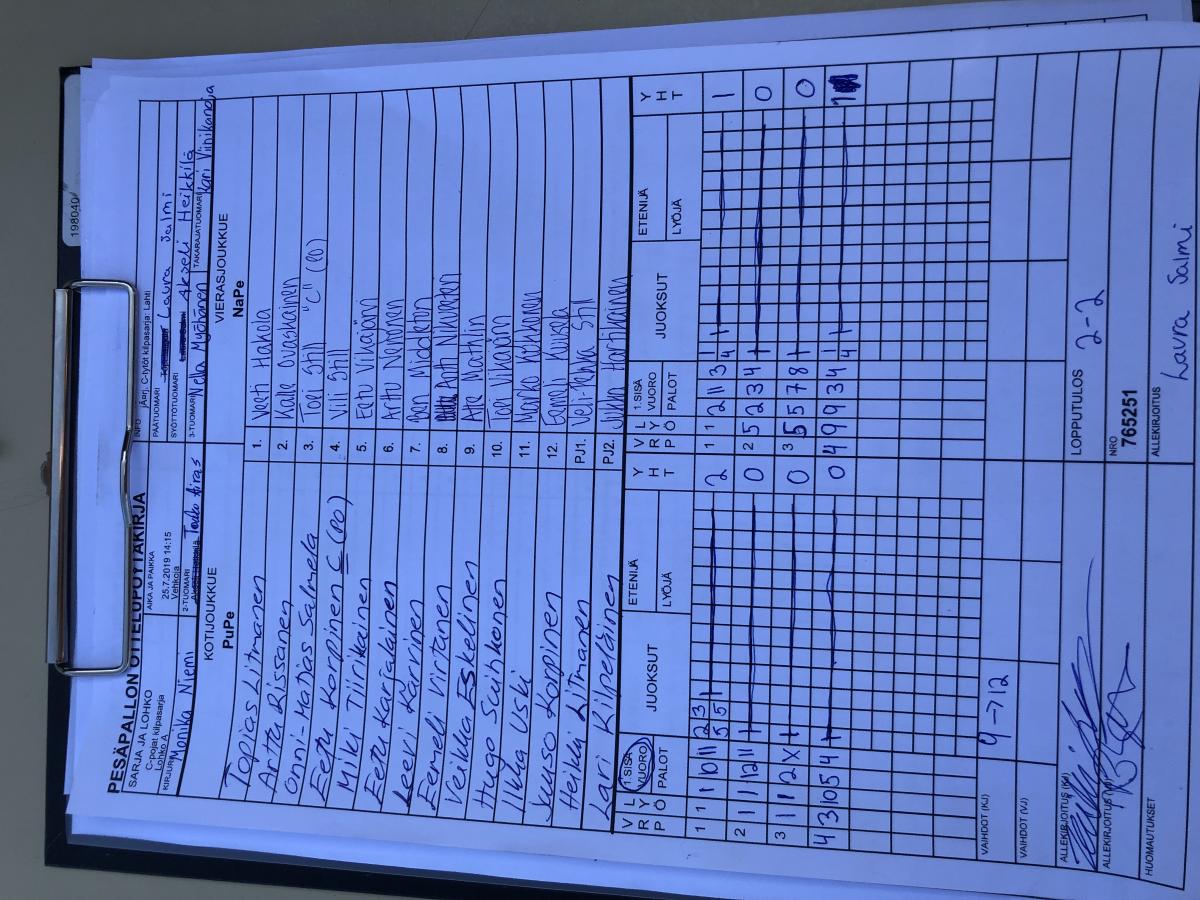 198040
PESÄPALLON OTTELUPÖYTÄKIRJA
SARJA JA LOHKO
C-pojat kilpasarja
Lohko A
AIKA JA PAIKKA
25.7.2019 14:15
Vehkoja
INFO
jÄPrj. C-tytöt kilpasarja: Lahti
PÄÄTUOMARI Laura Salmi
SYÖTTÖTUOMARI Akseli Heikkilä
KIRJURI Monika Niemi
2-TUOMARI
3-TUOMARI Nella Myöhänen
TAKARAJATUOMARI Kari Viinikanoja
KOTIJOUKKUE
PuPe
VIERASJOUKKUE
NaPe
Topias Litmanen 1. Veeti Hakola
Arttu Rissanen 2. Kalle Ovaskainen
Onni-Matias Salmela 3. Topi Still "C" (PO)
Eetu Korpinen C (PO) 4. Vili Still
Miki Tiirikainen 5. Eetu Vikajärvi
Eetu Karjalainen 6. Arttu Naironen
Leevi Karvinen 7. Ben Middleton
Eemeli Virtanen 8. Antti
Veikka Eskelinen 9. Atte
Hugo Suihkonen 10. Topi
Ilkka Uski 11. Marko
Juuso Korpinen 12. Eemeli Kuisla
Heikki Litmanen PJ1. Veli-Pekka Still
Lari Kilpeläinen PJ2. Jukka Hartikainen
V R P L Y Ö 1.SISÄ VUORO PALOT JUOKSUT ETENIJÄ LYÖJÄ Y H T V R P L Y Ö 1.SISÄ VUORO PALOT JUOKSUT ETENIJÄ LYÖJÄ Y H T
1 1 1 10 11 2 3 2 1 1 2 11 3 1 1
5 5 1 4 1
2 1 1 12 11 0 2 5 2 3 4 0
3 1 1 2 X 0 3 5 5 7 8 0
4 3 10 5 4 0 4 9 9 3 4 1 1
4 1
VAIHDOT (KJ) 9 → 12
VAIHDOT (VJ)
ALLEKIRJOITUS (KJ)
LOPPUTULOS 2-2
ALLEKIRJOITUS (VJ)
NRO
765251
HUOMAUTUKSET
ALLEKIRJOITUS
Laura Salmi